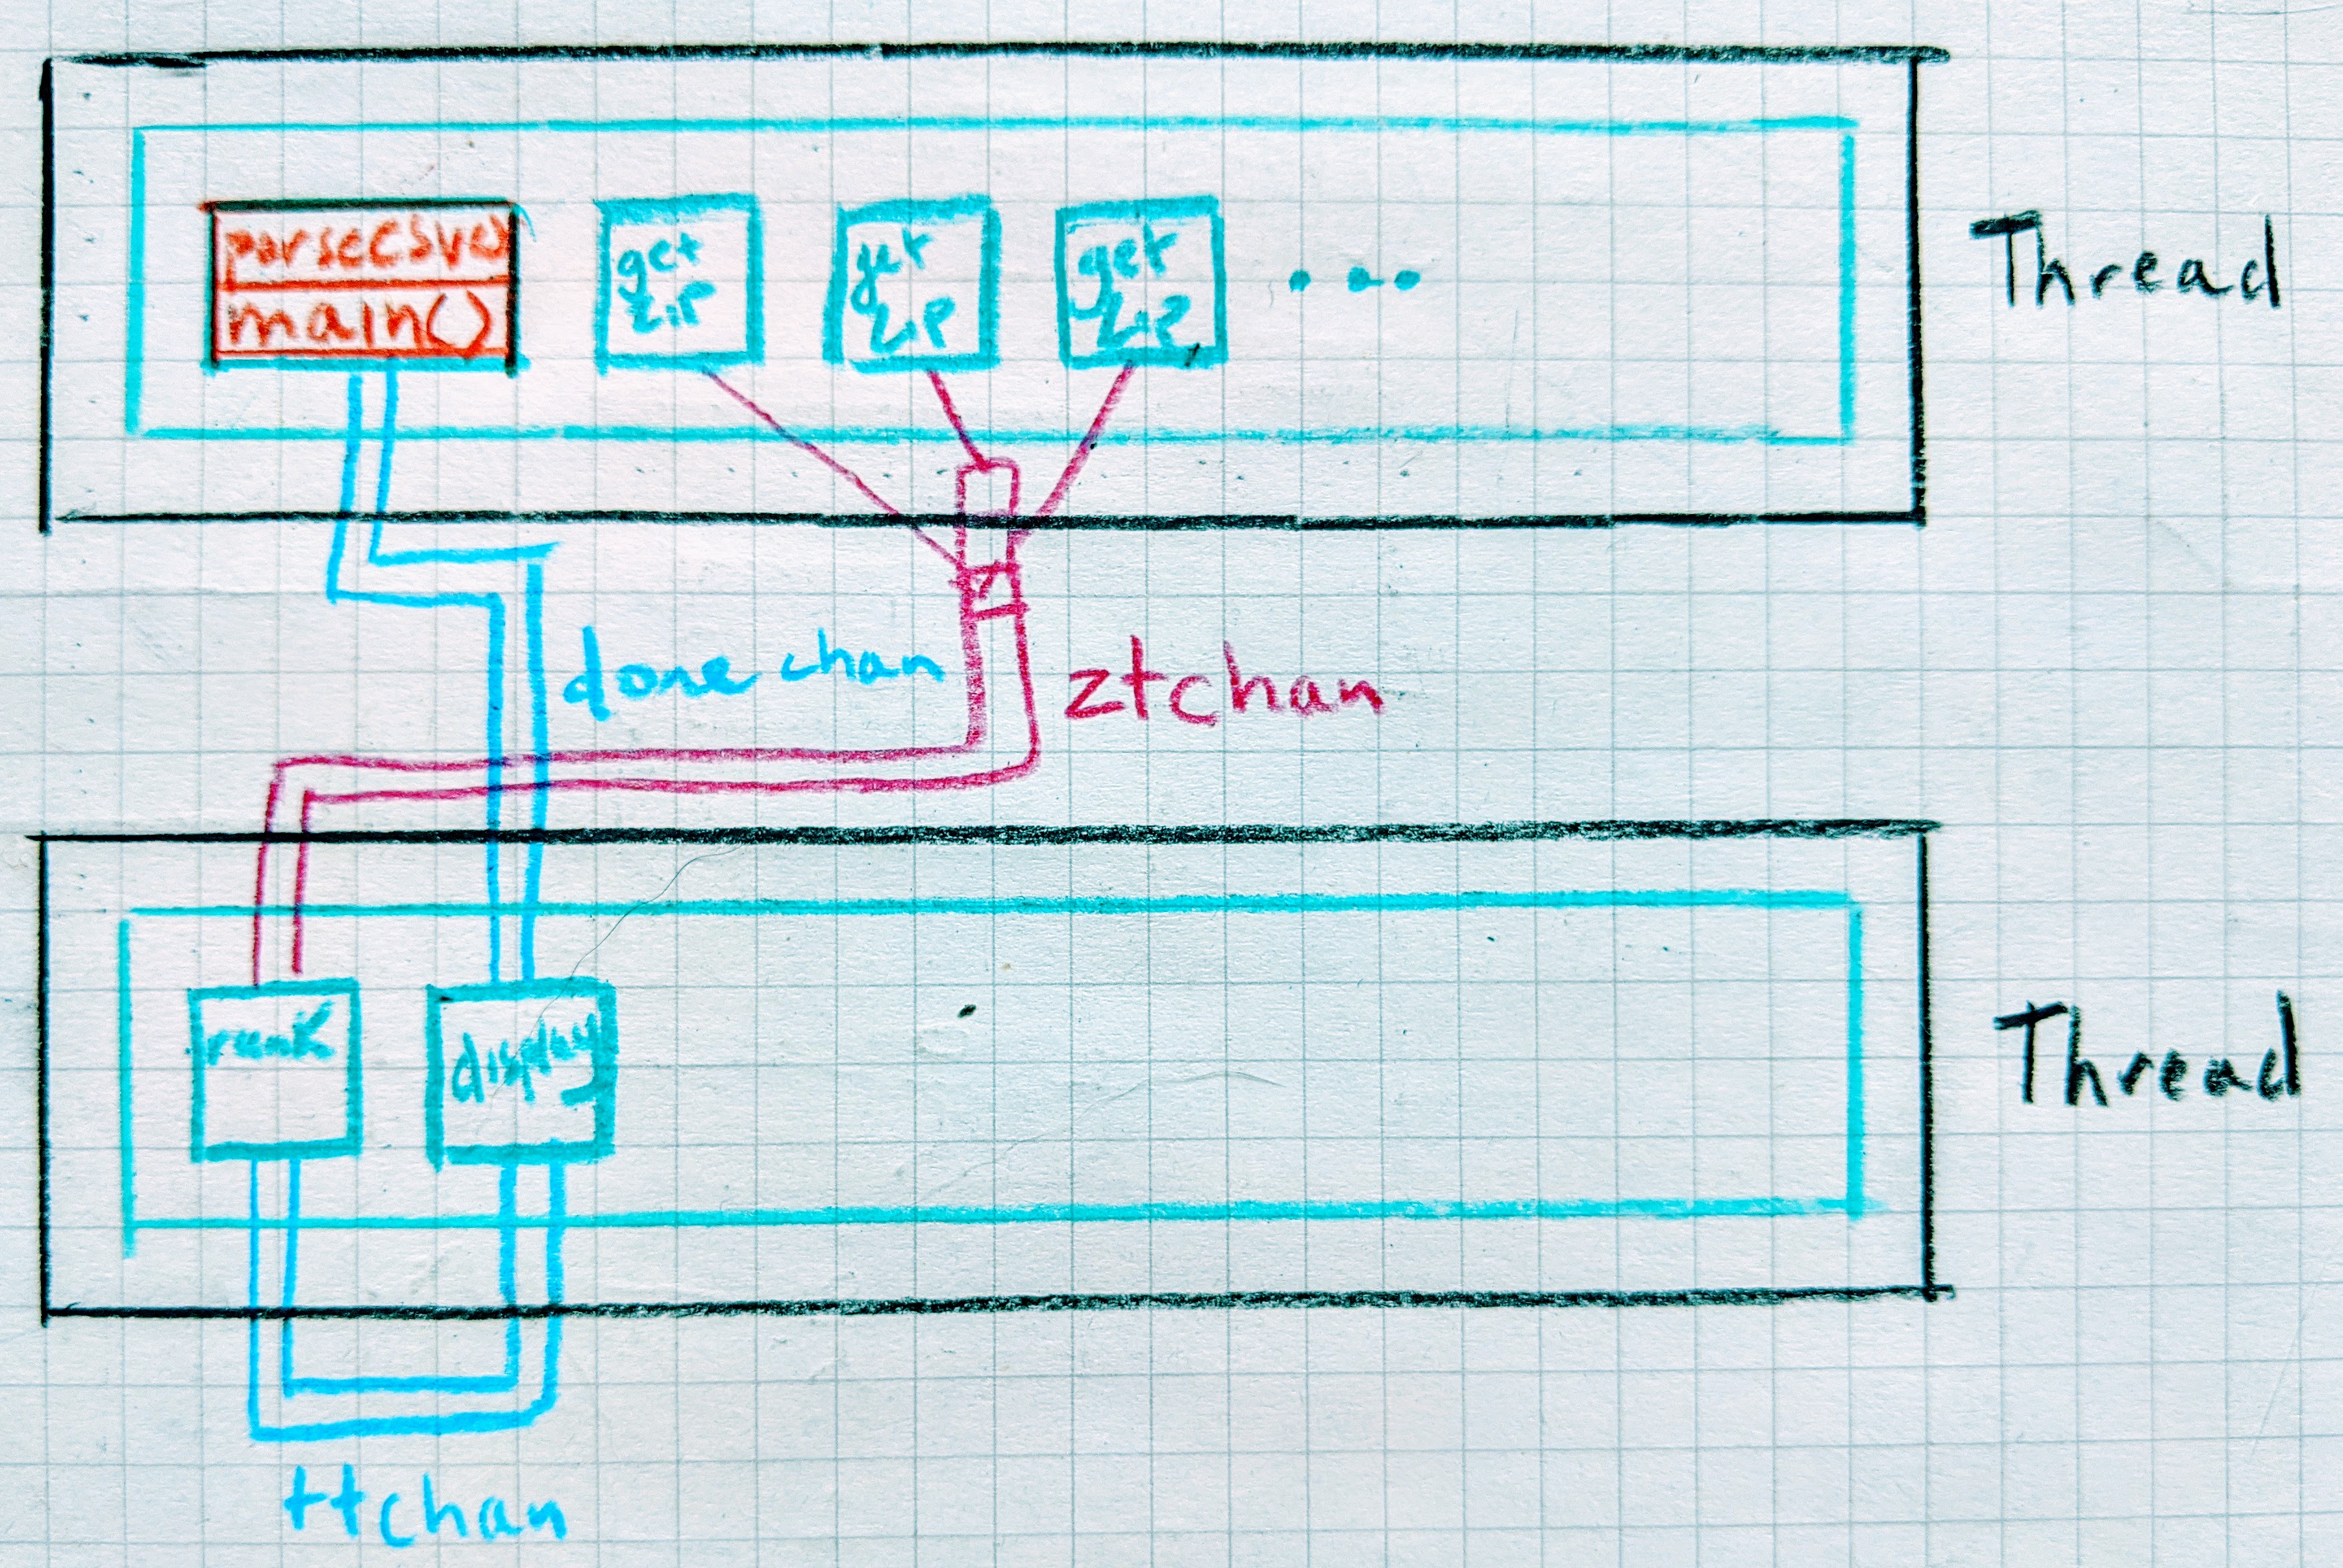 parsecsv()
main()
get
zip
get
zip
get
zip
...
Thread
done chan
ztchan
rank
display
Thread
ttchan